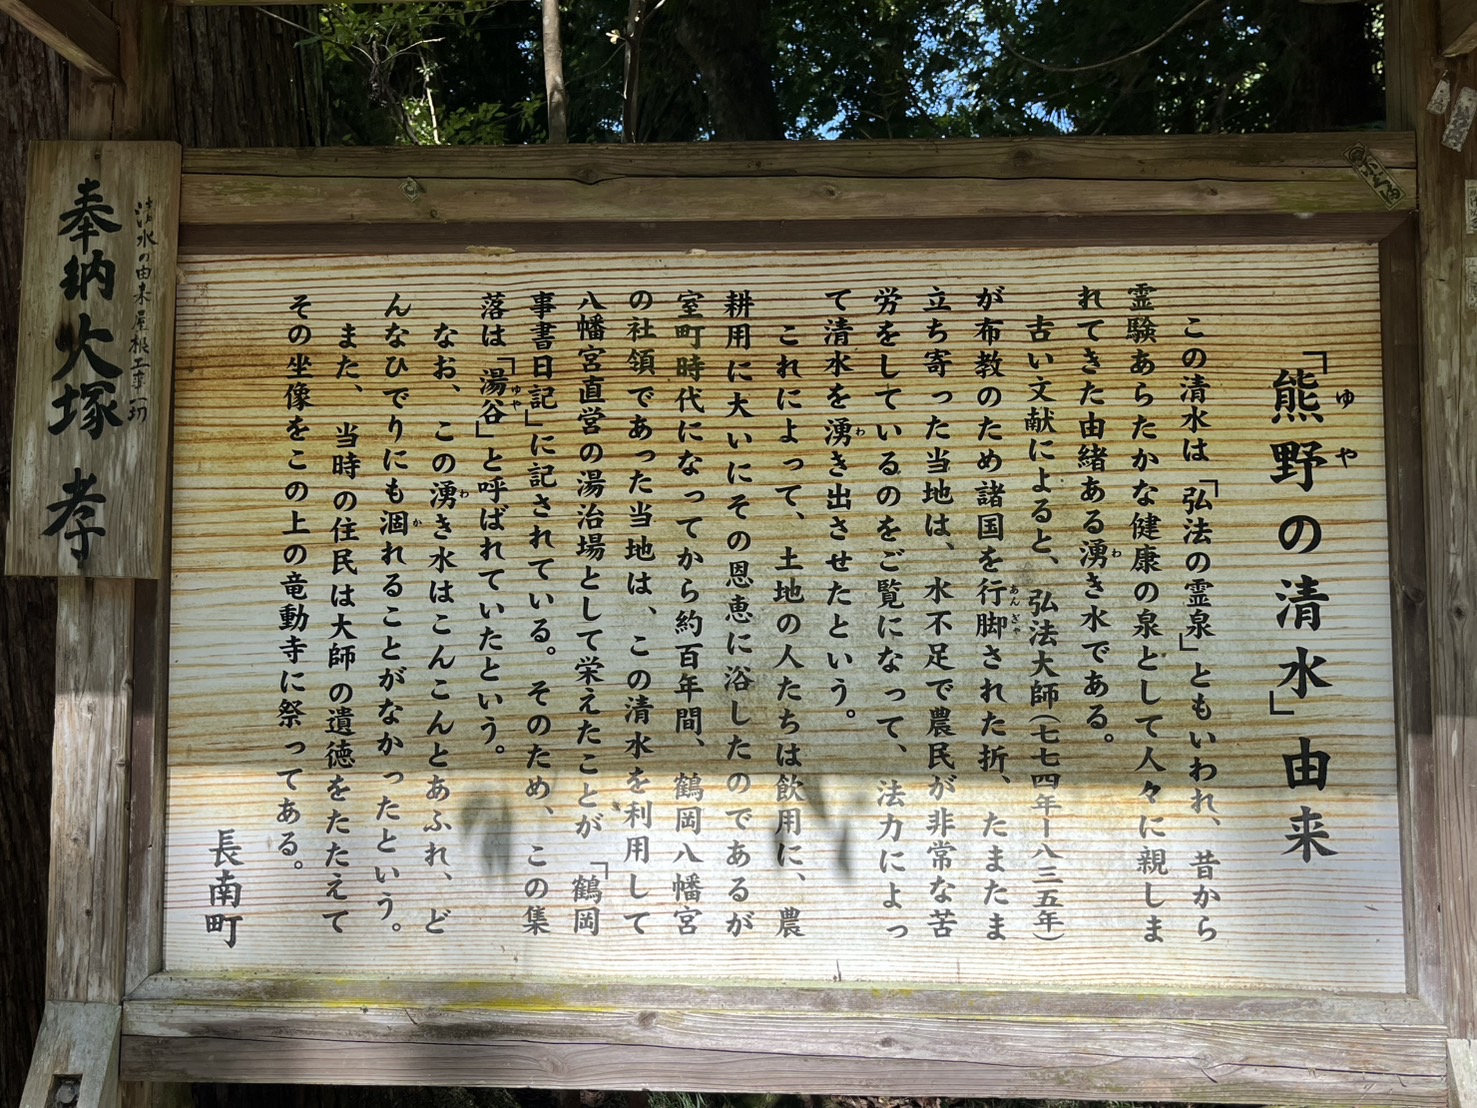 「熊野の清水」由来
ゆや
この清水は「弘法の霊泉」ともいわれ、昔から
霊験あらたかな健康の泉として人々に親しま
れてきた由緒ある湧き水である。
わ
古い文献によると、弘法大師(七七四年ー八三五年)
が布教のため諸国を行脚された折、たまたま
あんぎゃ
立ち寄った当地は、水不足で農民が非常な苦
労をしているのをご覧になって、法力によっ
て清水を湧き出させたという。
わ
これによって、土地の人たちは飲用に、農
耕用に大いにその恩恵に浴したのであるが
室町時代になってから約百年間、鶴岡八幡宮
の社領であった当地は、この清水を利用して
八幡宮直営の湯治場として栄えたことが「鶴岡
事書日記」に記されている。そのため、この集
落は「湯谷」と呼ばれていたという。
ゆや
なお、この湧き水はこんこんとあふれ、ど
わ
んなひでりにも涸れることがなかったという。
か
また、当時の住民は大師の遺徳をたたえて
その坐像をこの上の竜動寺に祭ってある。
長南町
清水の由来屋根工事一切
奉納大塚孝